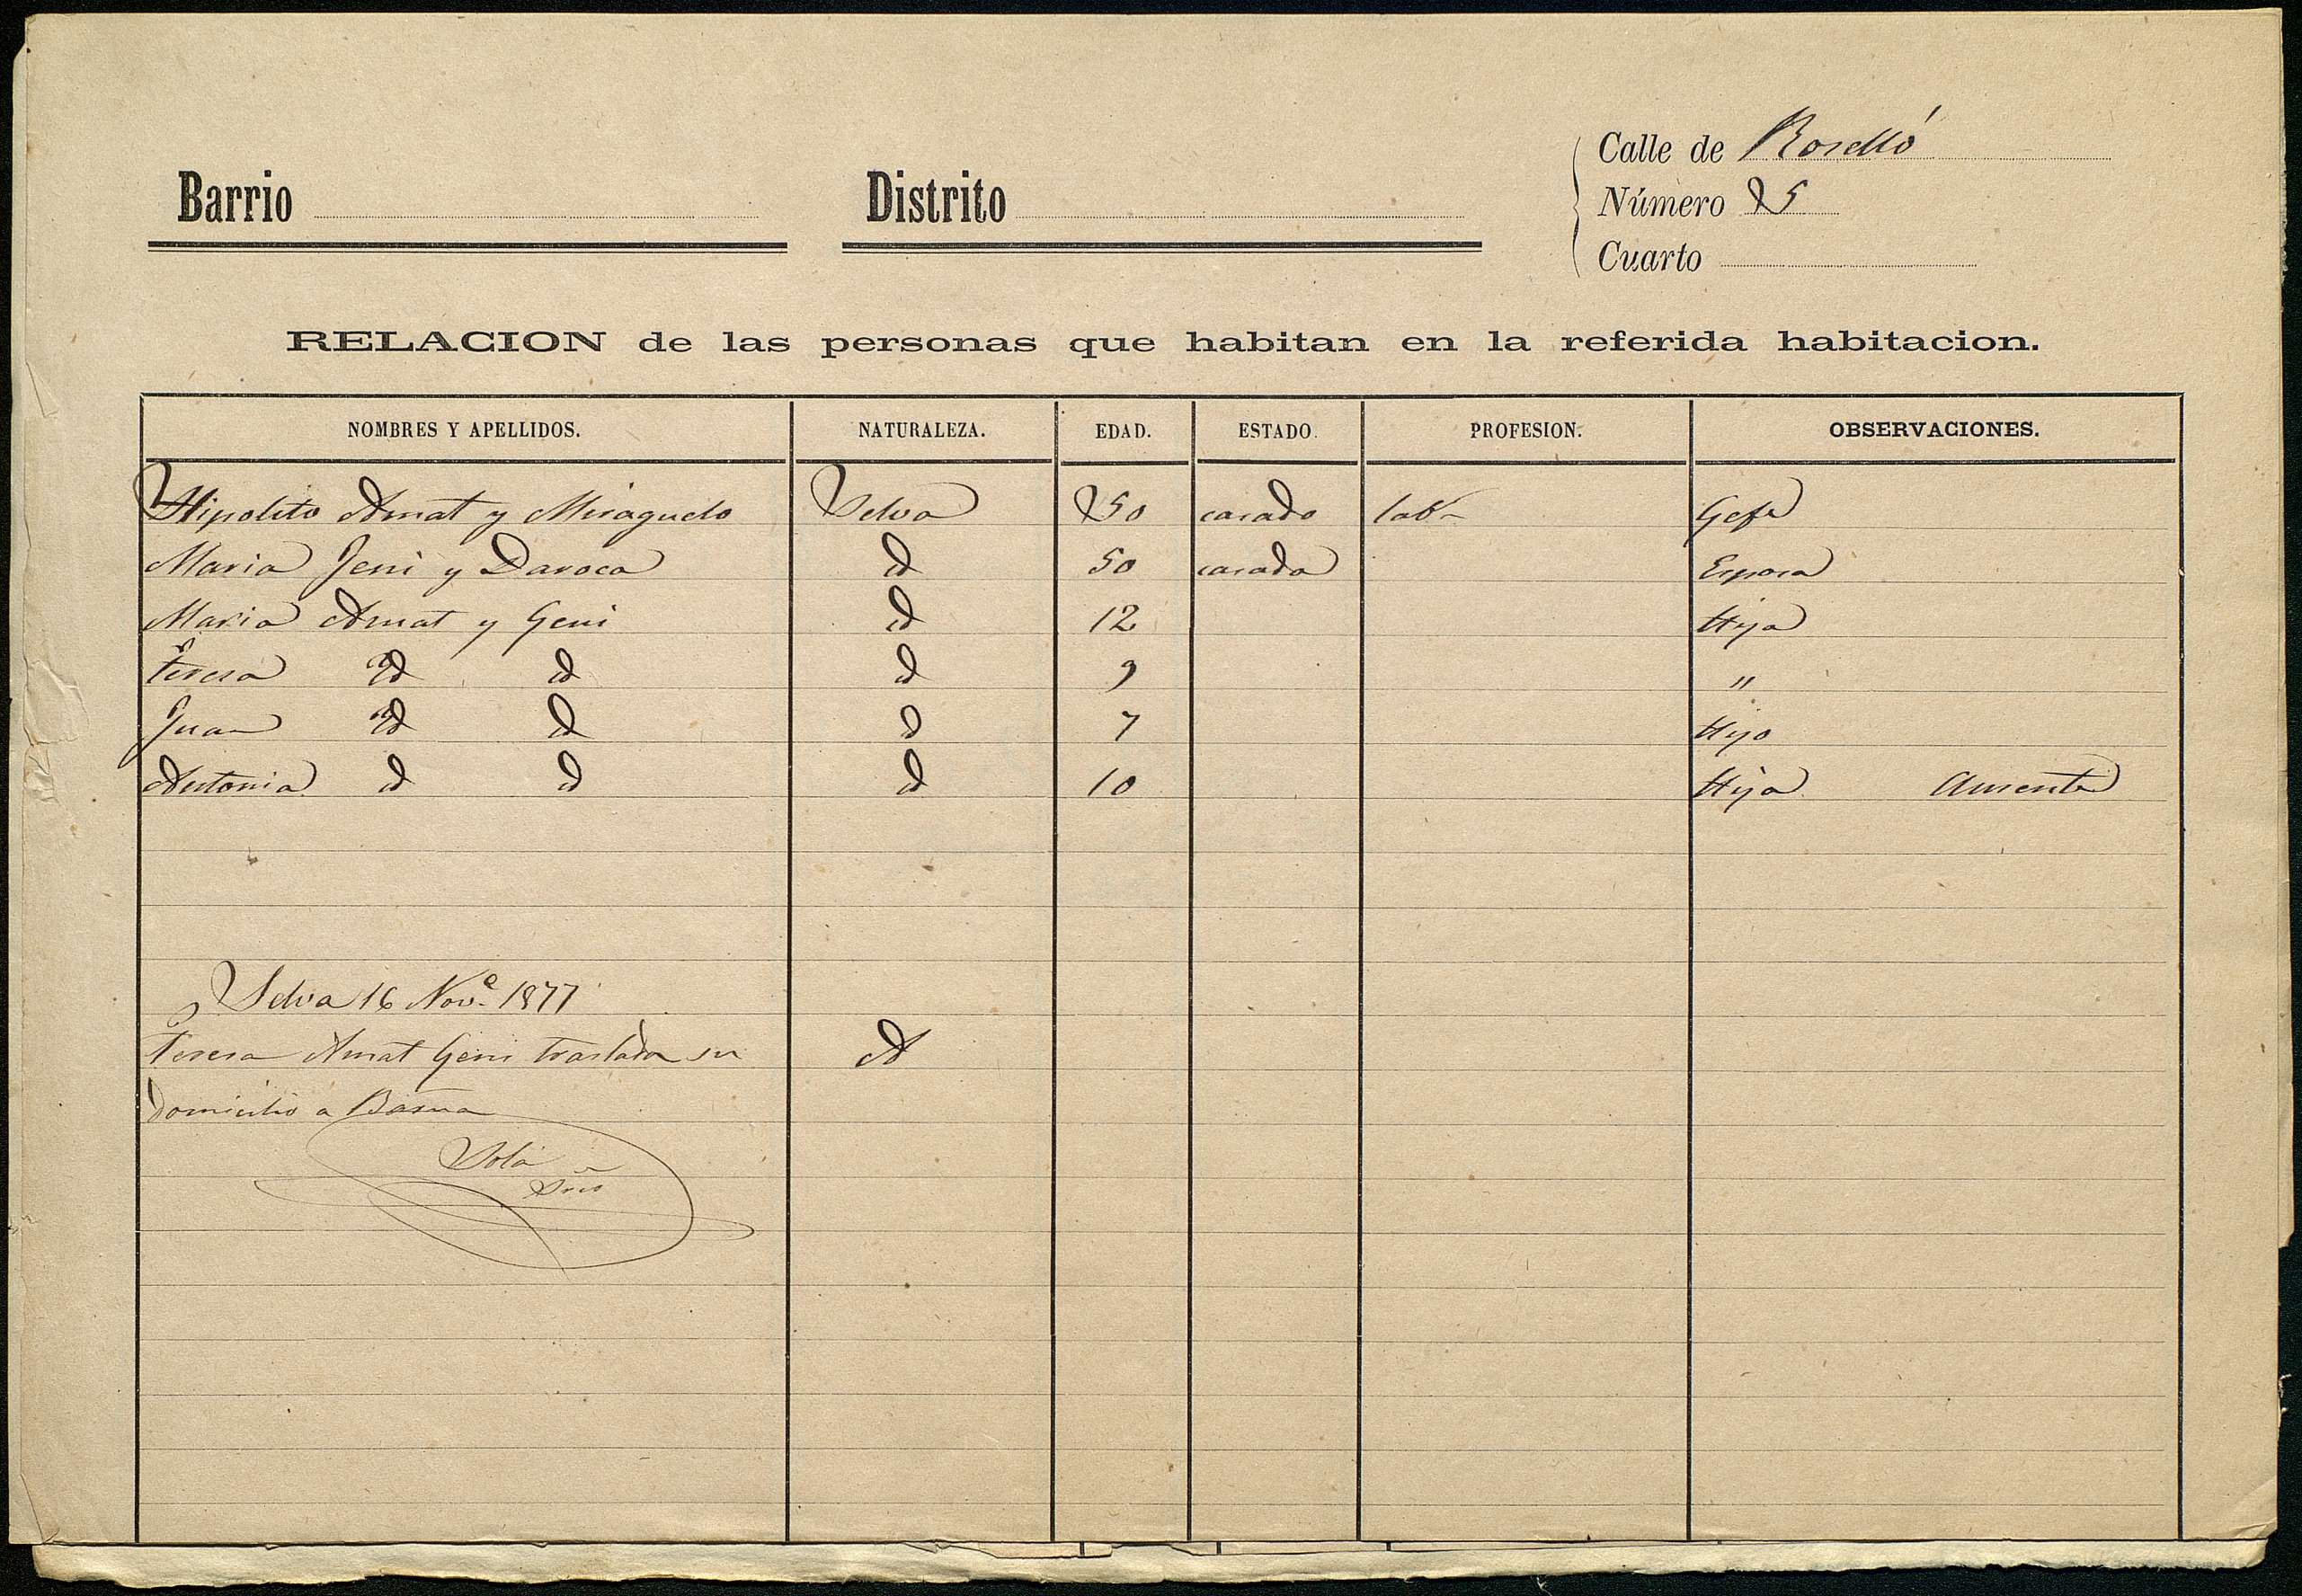 Barrio
Distrito
Calle de Roselló
Número 5
Cuarto
RELACION de las personas que habitan en la referida habitacion.
NOMBRES Y APELLIDOS. NATURALEZA. EDAD. ESTADO. PROFESION. OBSERVACIONES.
Hipolito Amat y Miraguelo Selva 50 casado lab.r Gefe
Maria Jeni y Daroca id 50 casada Esposa
Maria Amat y Geni id 12 Hija
Teresa id id id 9 "
Juan id id id 7 Hijo
Antonia id id id 10 Hija Ausente
Selva 16 Nov.e 1877
Teresa Amat Geni traslada su
domicilio a Barna
Solá